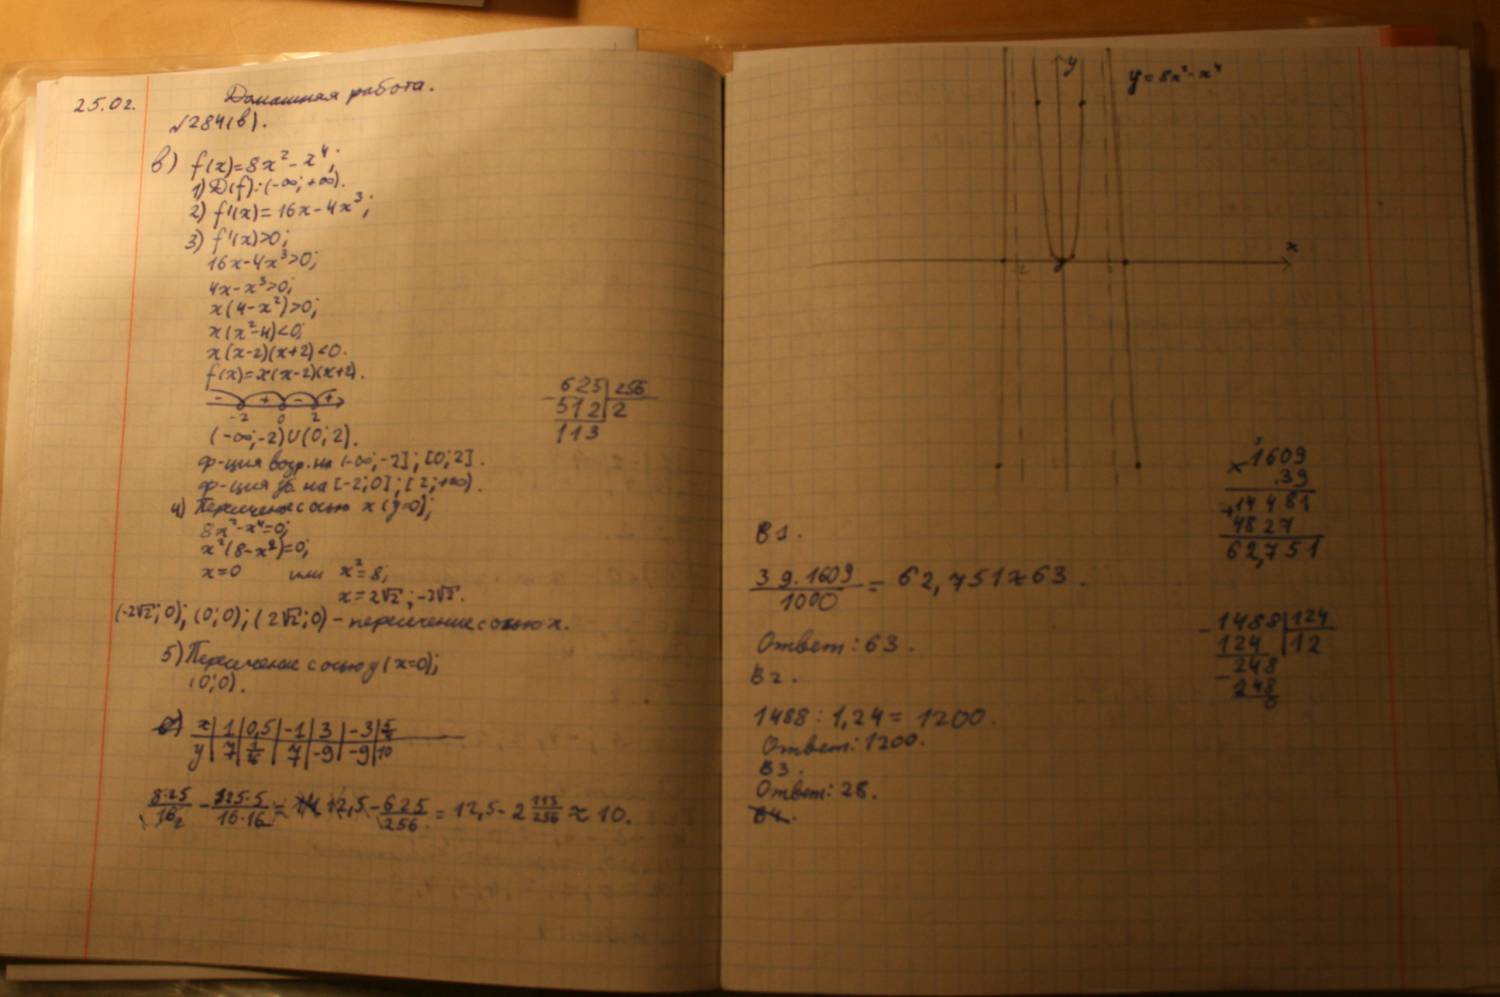 25.02.
Домашная работа.
№284(в).
в) f(x)=8x²-x⁴;
1) D(f):(-∞;+∞).
2) f'(x)=16x-4x³;
3) f'(x)>0;
16x-4x³>0;
4x-x³>0;
x(4-x²)>0;
x(x²-4)<0;
x(x-2)(x+2)<0.
f(x)=x(x-2)(x+2).
- + - +
-2 0 2
(-∞;-2)U(0;2).
ф-ция возр. на (-∞;-2];[0;2].
ф-ция уб. на [-2;0];[2;+∞).
4) Пересечение с осью x (y=0);
8x²-x⁴=0;
x²(8-x²)=0;
x=0 или x²=8;
x=2√2;-2√2.
(-2√2;0);(0;0);(2√2;0) - пересечение с осью x.
5) Пересечение с осью y (x=0);
(0;0).
x 1 0,5 -1 3 -3
y 7 7 -9 -9 10
= 12,5 - 625/256 = 12,5 - 2 113/256 ≈ 10.
625 256
512 2
113
y
y=8x²-x⁴
x
-2
B1.
39·1609/1000 = 62,751≈63.
Ответ: 63.
B2.
1488:1,24=1200.
Ответ: 1200.
B3.
Ответ: 28.
B4.
1609
39
14481
4827
62,751
1488 124
124 12
248
248
0